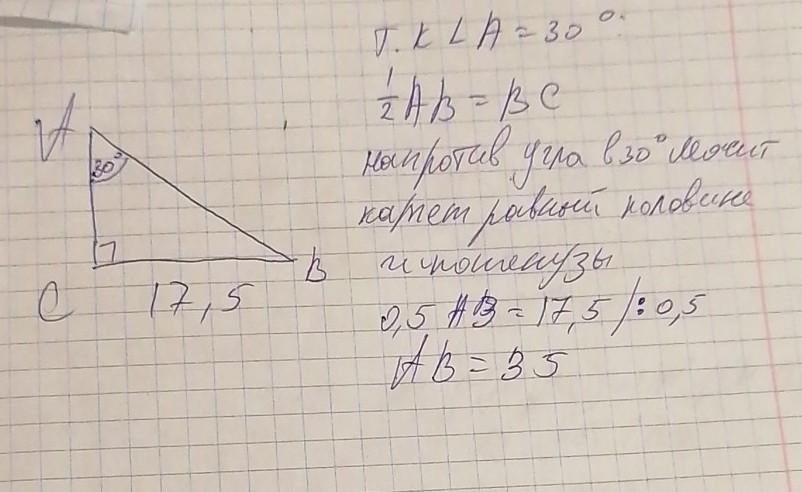 Т.к ∠A = 30°:
½AB = BC
напротив угла в 30° лежит
катет равный половине
гипотенузы
0,5 AB = 17,5 /: 0,5
AB = 35
A
30°
B
C
17,5